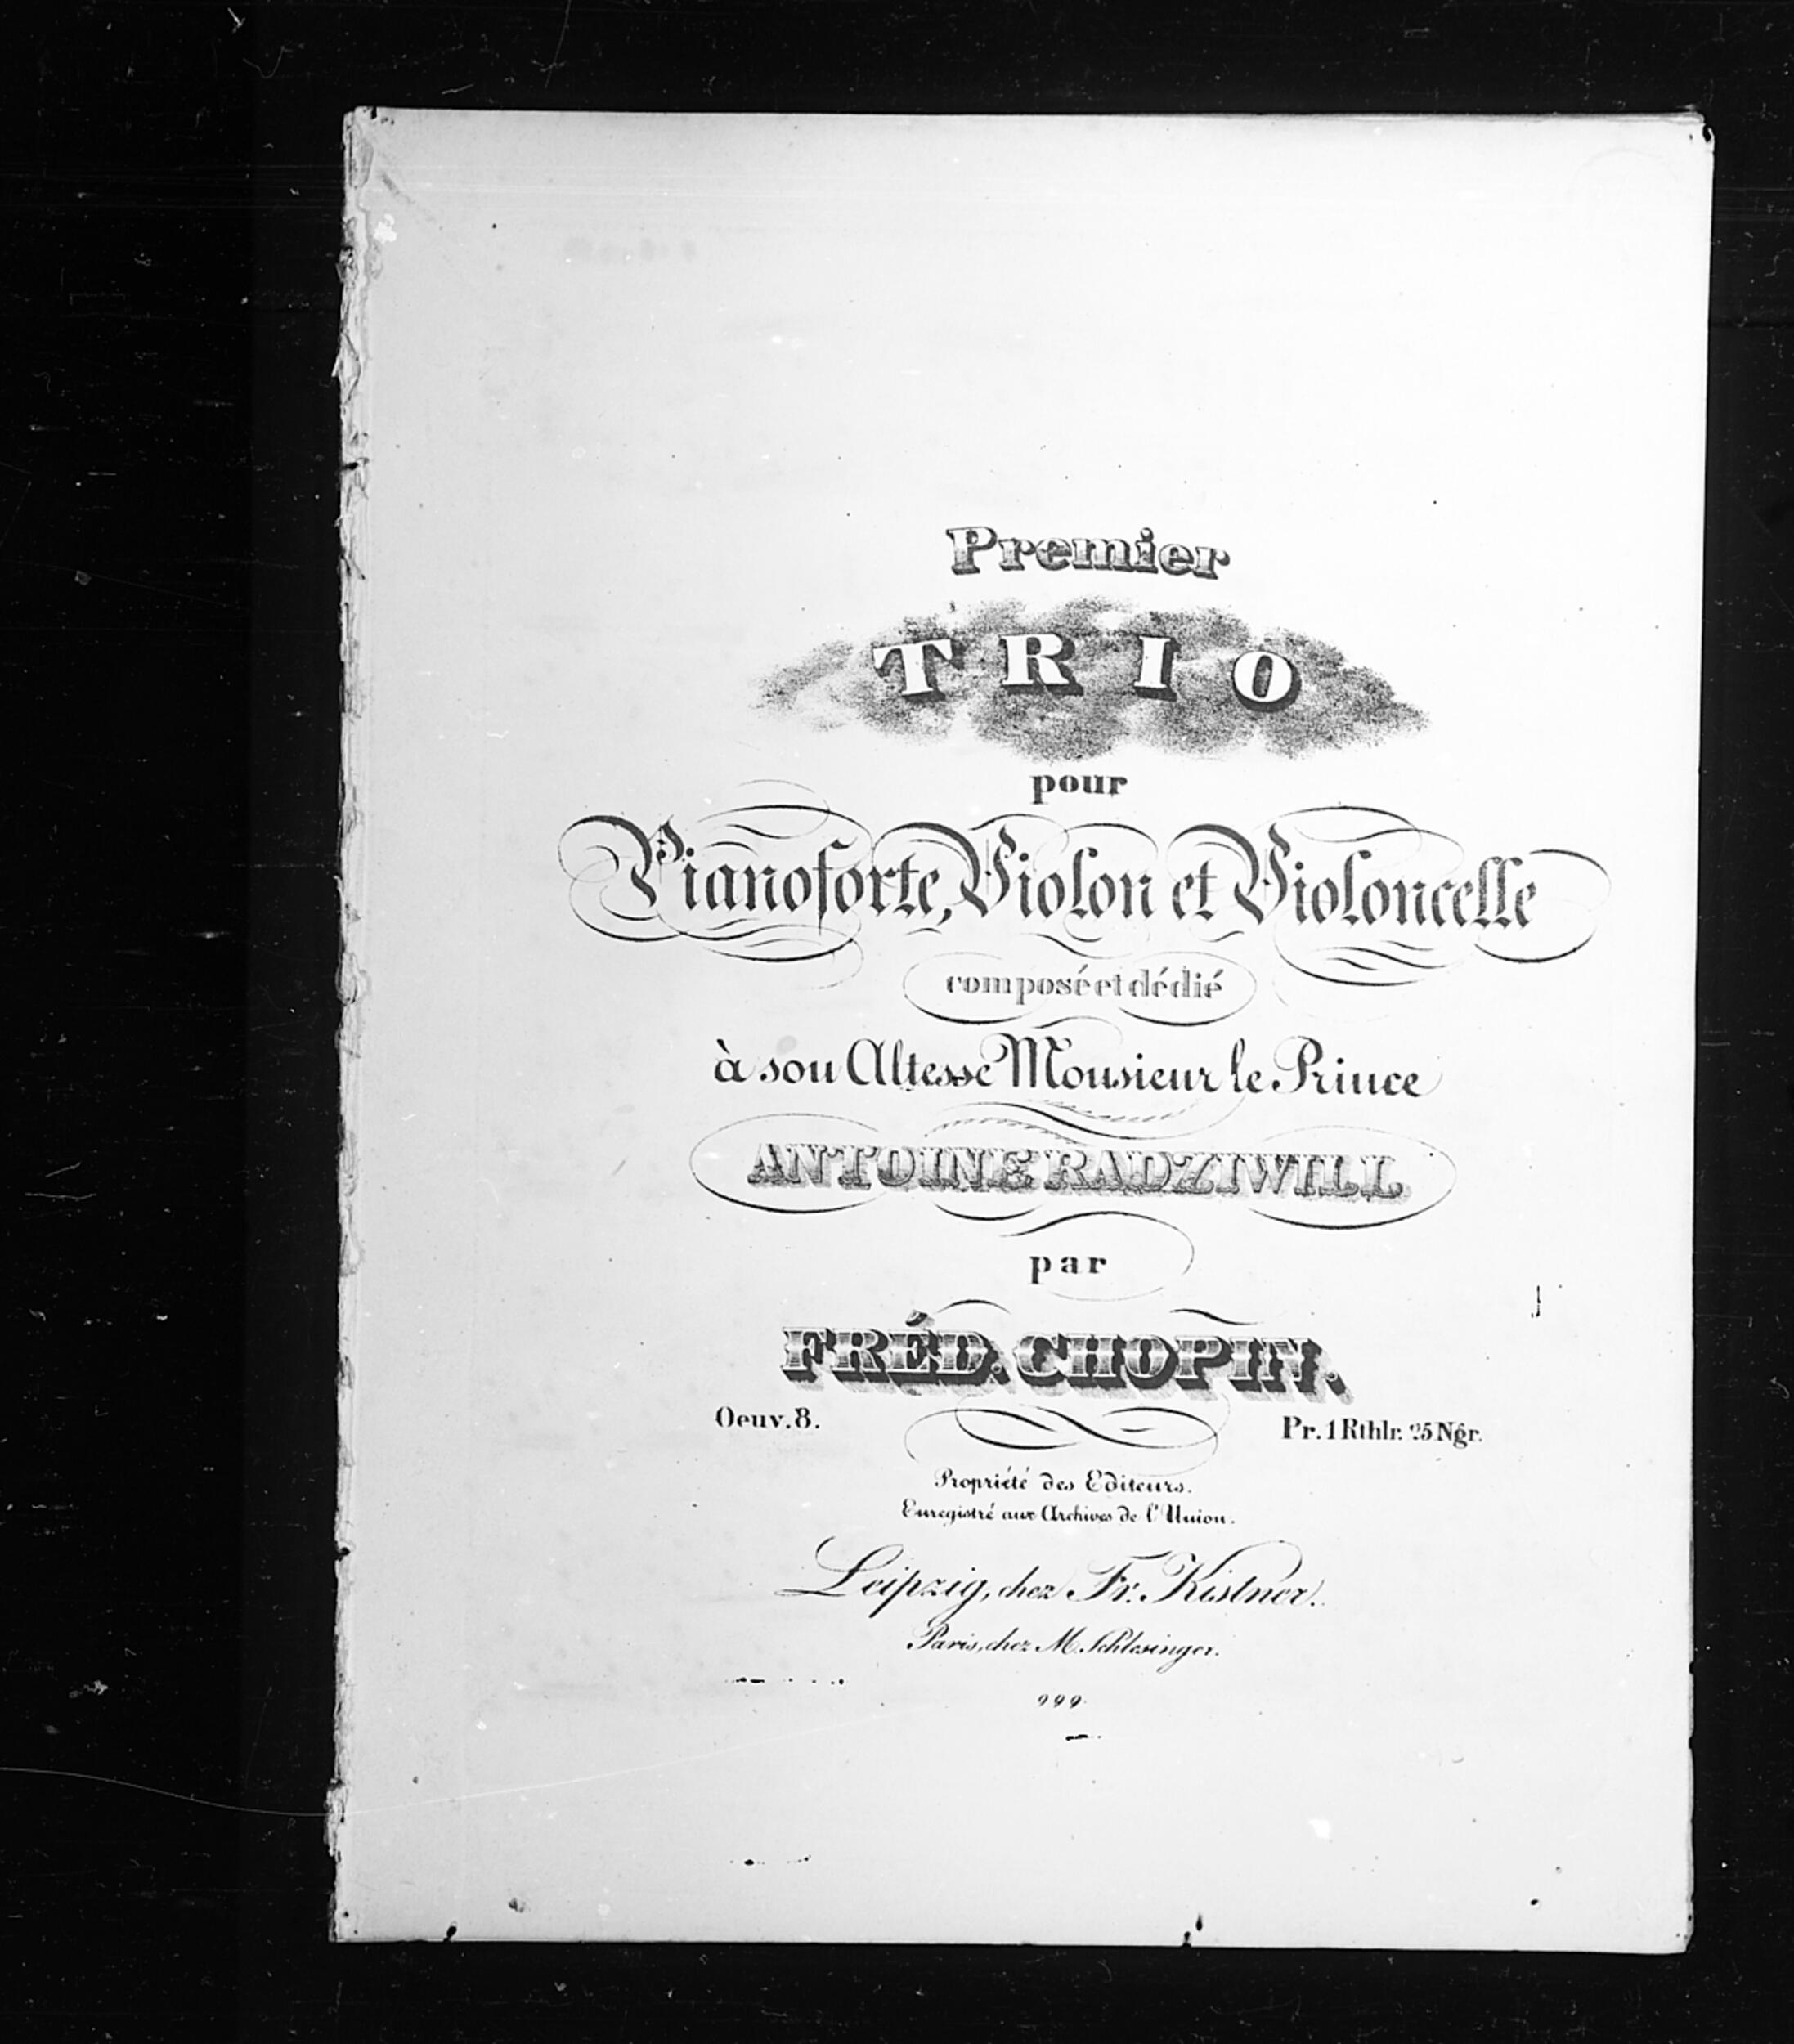 Premier
TRIO
pour
Pianoforte, Violon et Violoncelle
composé et dédié
à son Altesse Monsieur le Prince
ANTOINE RADZIWILL
par
FRÉD. CHOPIN.
Oeuv. 8. Pr. 1 Rthlr. 25 Ngr.
Propriété des Editeurs.
Enregistré aux Archives de l'Union.
Leipzig, chez Fr. Kistner.
Paris, chez M. Schlesinger.
999